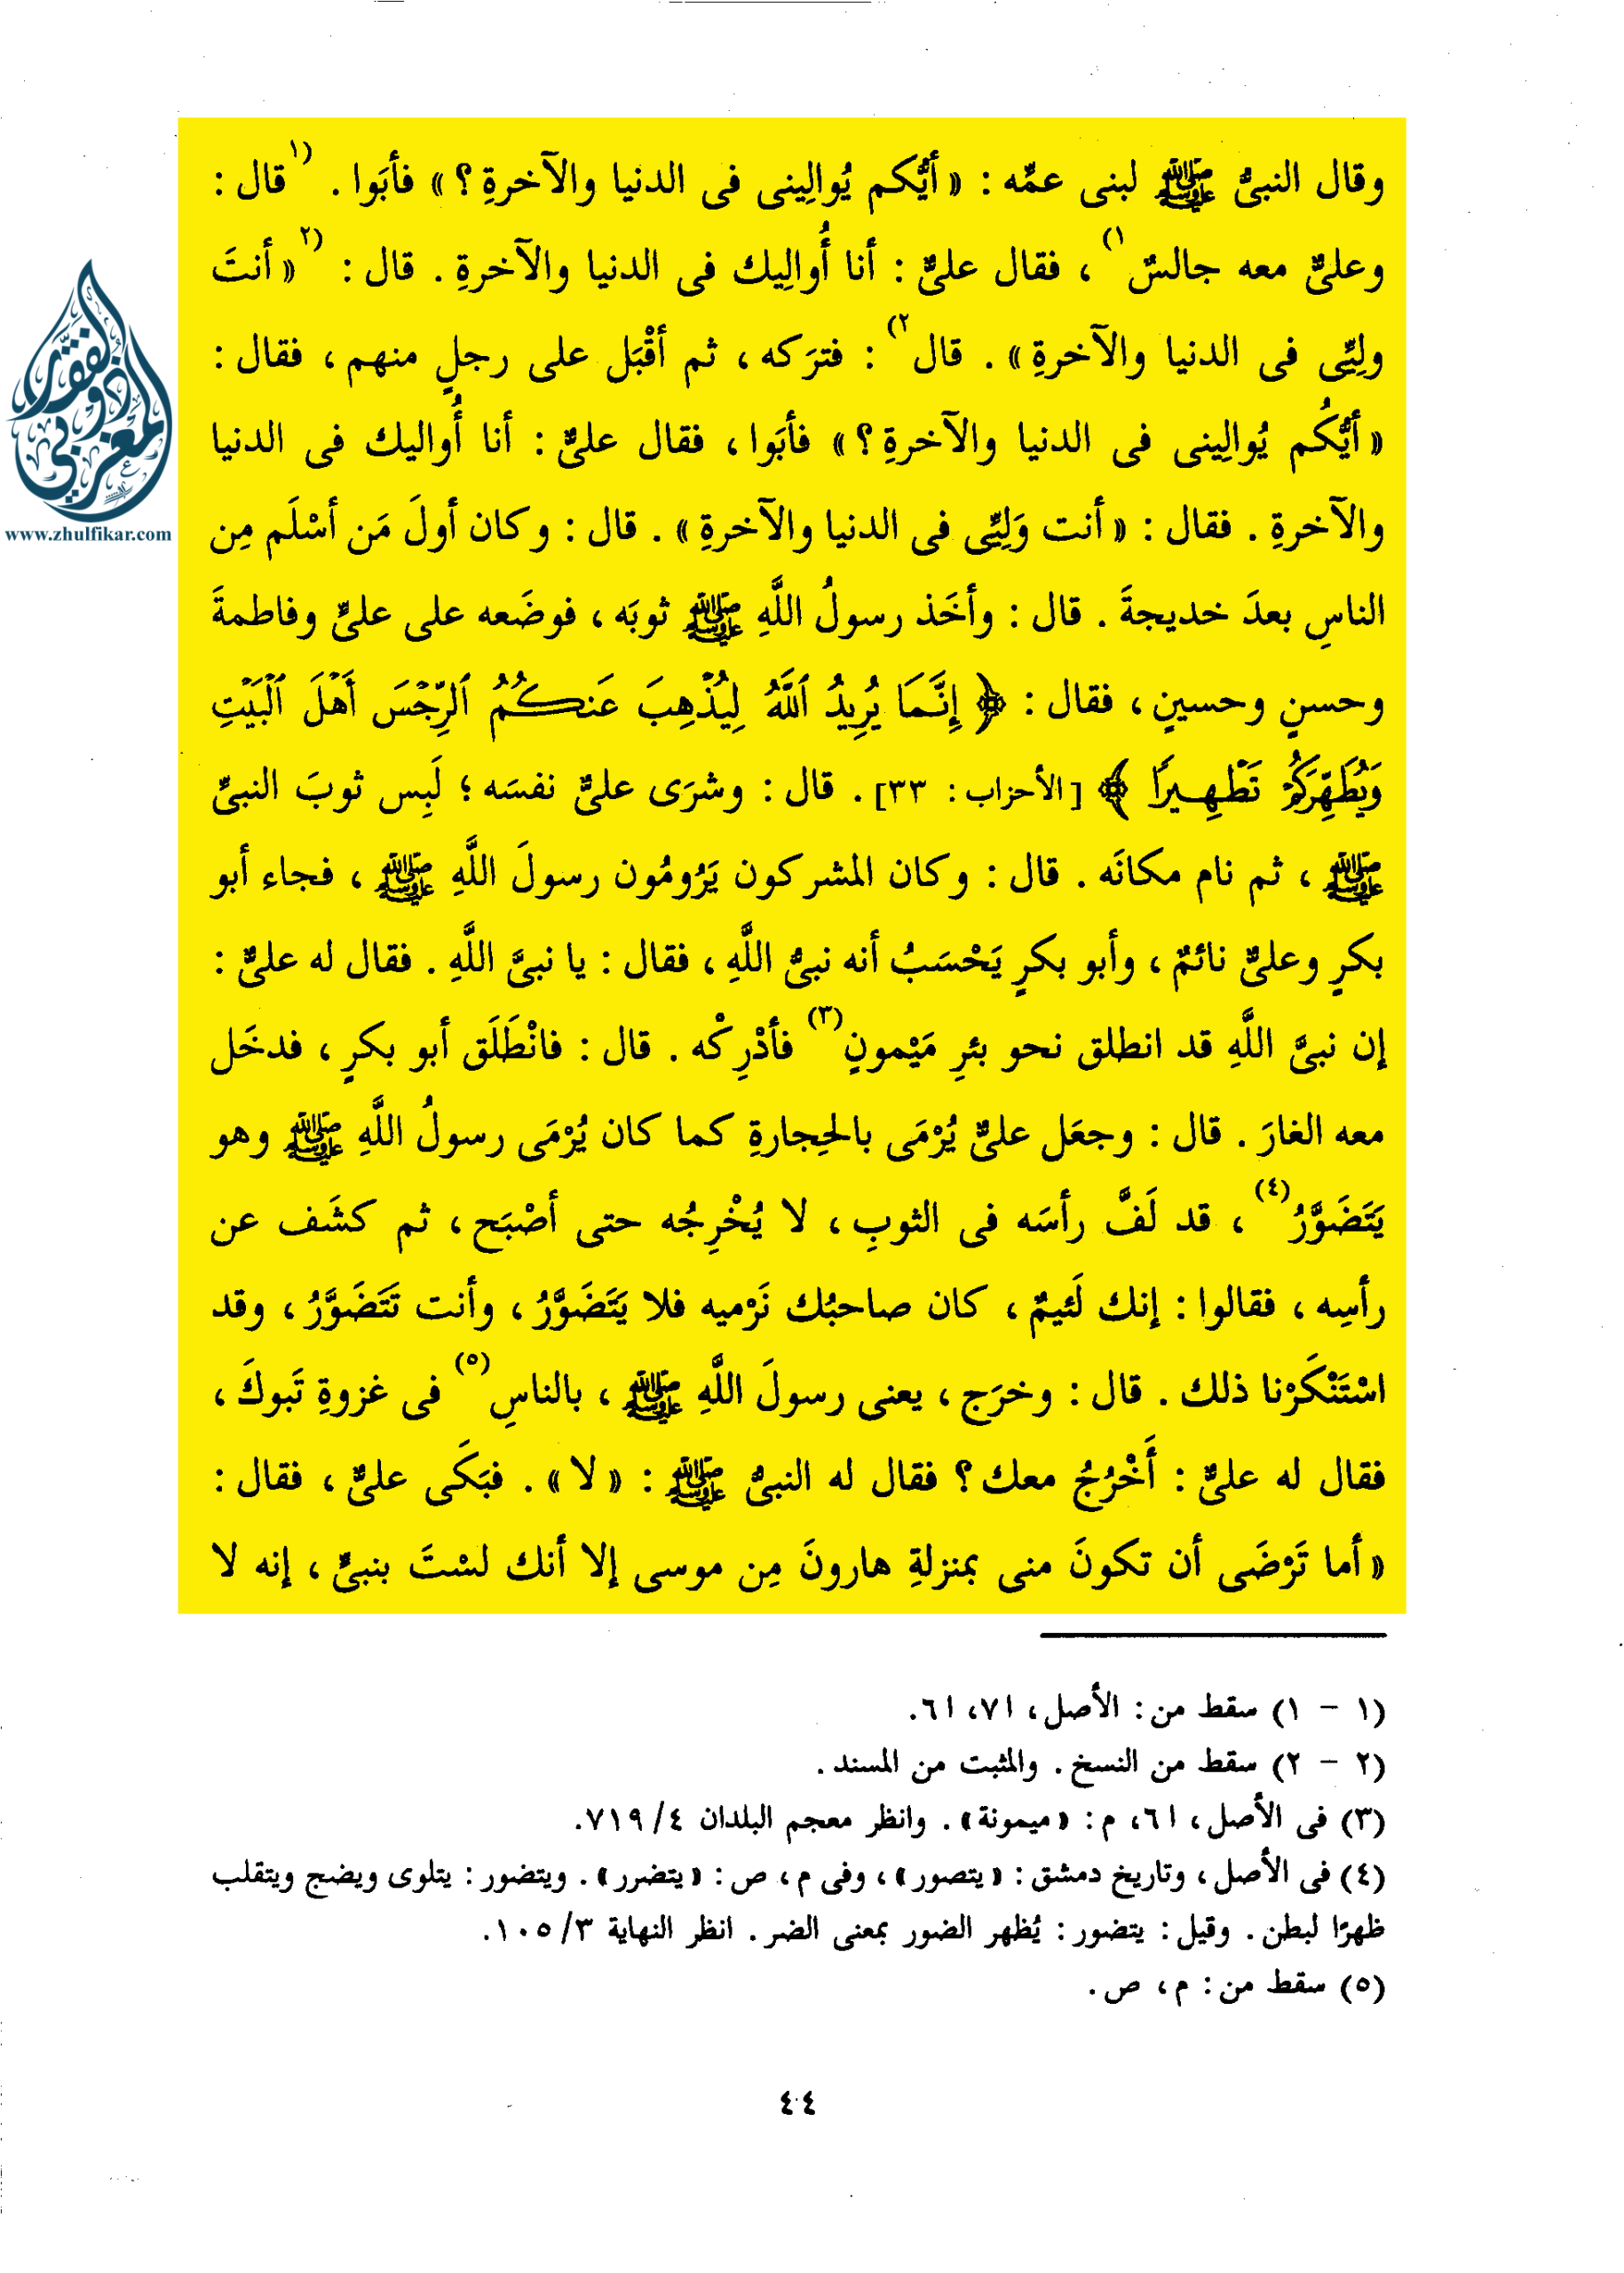 وقال النبىُّ ﷺ لبنى عمِّه : « أيُّكم يُوالِينى فى الدنيا والآخرةِ ؟ » فأبَوا . (١قال :
وعلىٌّ معه جالسٌ١) ، فقال علىٌّ : أنا أُوالِيك فى الدنيا والآخرةِ . قال : (٢« أنتَ
ولِيِّى فى الدنيا والآخرةِ » . قال٢) : فترَكه ، ثم أقْبَل على رجلٍ منهم ، فقال :
« أيُّكُم يُوالِينى فى الدنيا والآخرةِ ؟ » فأبَوا ، فقال علىٌّ : أنا أُواليك فى الدنيا
والآخرةِ . فقال : « أنت وَلِيِّى فى الدنيا والآخرةِ » . قال : وكان أولَ مَن أسْلَم مِن
الناسِ بعدَ خديجةَ . قال : وأخَذ رسولُ اللَّهِ ﷺ ثوبَه ، فوضَعه على علىٍّ وفاطمةَ
وحسنٍ وحسينٍ ، فقال : ﴿ إِنَّمَا يُرِيدُ ٱللَّهُ لِيُذْهِبَ عَنكُمُ ٱلرِّجْسَ أَهْلَ ٱلْبَيْتِ
وَيُطَهِّرَكُمْ تَطْهِيرًا ﴾ [ الأحزاب : ٣٣] . قال : وشرَى علىٌّ نفسَه ؛ لَبِس ثوبَ النبىِّ
ﷺ ، ثم نام مكانَه . قال : وكان المشركون يَرُومُون رسولَ اللَّهِ ﷺ ، فجاء أبو
بكرٍ وعلىٌّ نائمٌ ، وأبو بكرٍ يَحْسَبُ أنه نبىُّ اللَّهِ ، فقال : يا نبىَّ اللَّهِ . فقال له علىٌّ :
إن نبىَّ اللَّهِ قد انطلق نحو بئرِ مَيْمونٍ(٣) فأدْرِكْه . قال : فانْطَلَق أبو بكرٍ ، فدخَل
معه الغارَ . قال : وجعَل علىٌّ يُرْمَى بالحِجارةِ كما كان يُرْمَى رسولُ اللَّهِ ﷺ وهو
يَتَضَوَّرُ(٤) ، قد لَفَّ رأسَه فى الثوبِ ، لا يُخْرِجُه حتى أصْبَح ، ثم كشَف عن
رأسِه ، فقالوا : إنك لَئيمٌ ، كان صاحبُك نَرْميه فلا يَتَضَوَّرُ ، وأنت تَتَضَوَّرُ ، وقد
اسْتَنْكَرْنا ذلك . قال : وخرَج ، يعنى رسولَ اللَّهِ ﷺ ، بالناسِ(٥) فى غزوةِ تَبوكَ ،
فقال له علىٌّ : أَخْرُجُ معك ؟ فقال له النبىُّ ﷺ : « لا » . فبَكَى علىٌّ ، فقال :
« أما تَرْضَى أن تكونَ منى بمنزلةِ هارونَ مِن موسى إلا أنك لسْتَ بنبىٍّ ، إنه لا
(١ - ١) سقط من : الأصل ، ٧١، ٦١.
(٢ - ٢) سقط من النسخ . والمثبت من المسند .
(٣) فى الأصل ، ٦١، م : « ميمونة » . وانظر معجم البلدان ٤/ ٧١٩.
(٤) فى الأصل ، وتاريخ دمشق : « يتصور » ، وفى م ، ص : « يتضرر » . ويتضور : يتلوى ويضج ويتقلب
ظهرًا لبطن . وقيل : يتضور : يُظهر الضور بمعنى الضر . انظر النهاية ٣/ ١٠٥.
(٥) سقط من : م ، ص .
٤٤
ذو الفقار المغربي
www.zhulfikar.com